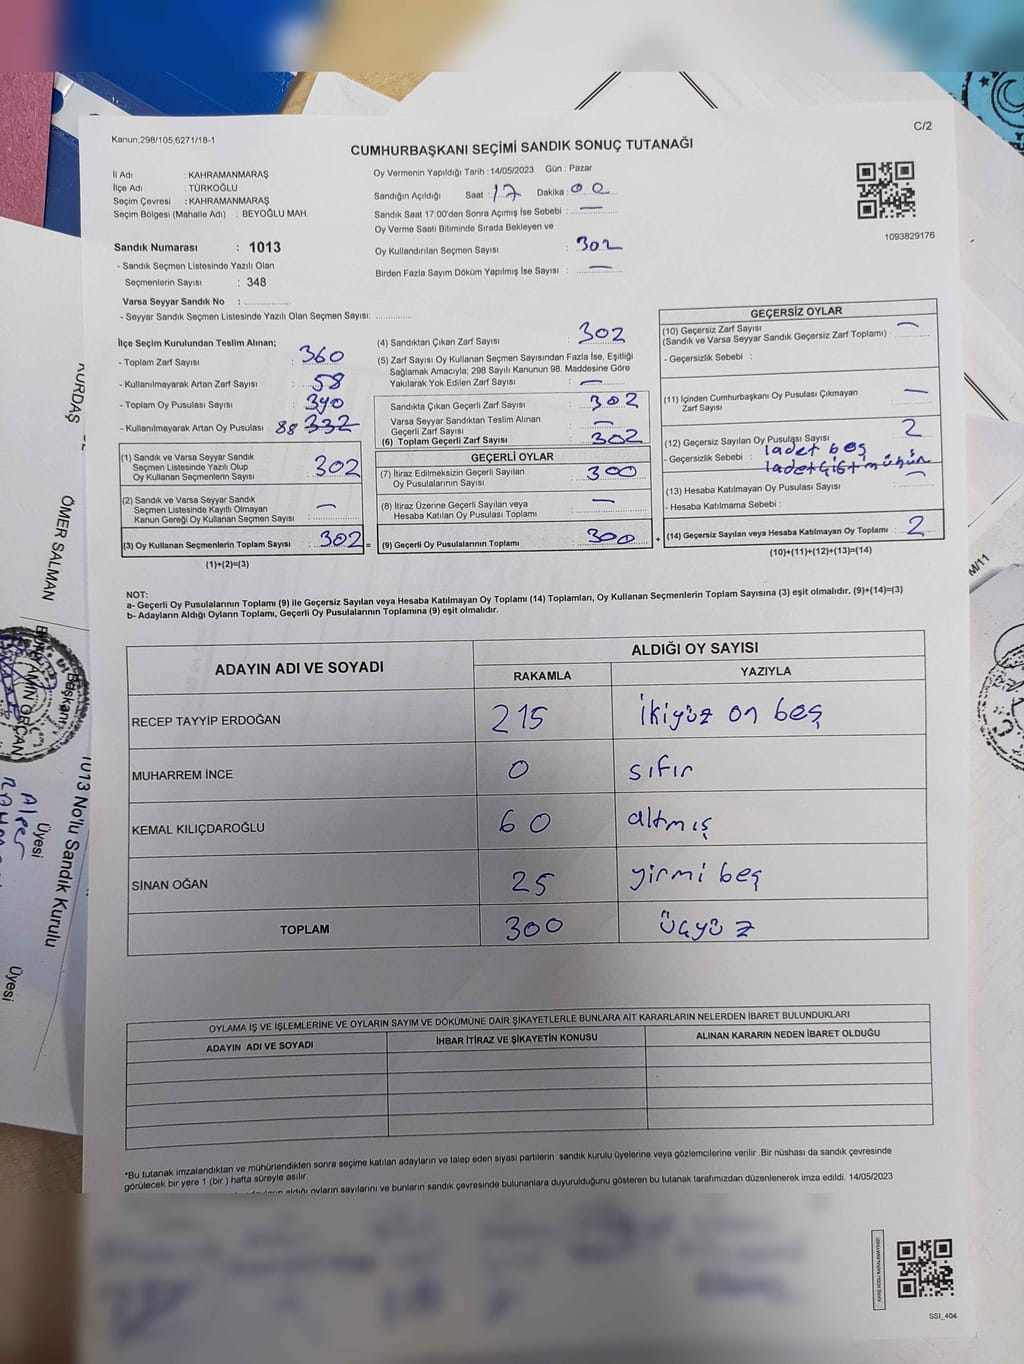 C/2
Kanun:298/105,6271/18-1
CUMHURBAŞKANI SEÇİMİ SANDIK SONUÇ TUTANAĞI
İl Adı : KAHRAMANMARAŞ
İlçe Adı : TÜRKOĞLU
Seçim Çevresi : KAHRAMANMARAŞ
Seçim Bölgesi (Mahalle Adı) : BEYOĞLU MAH.
Sandık Numarası : 1013
- Sandık Seçmen Listesinde Yazılı Olan
Seçmenlerin Sayısı : 348
Varsa Seyyar Sandık No :
- Seyyar Sandık Seçmen Listesinde Yazılı Olan Seçmen Sayısı:
Oy Vermenin Yapıldığı Tarih : 14/05/2023 Gün : Pazar
Sandığın Açıldığı Saat : 17 Dakika : 00
Sandık Saat 17:00'den Sonra Açımış İse Sebebi : —
Oy Verme Saati Bitiminde Sırada Bekleyen ve
Oy Kullandırılan Seçmen Sayısı : 302
Birden Fazla Sayım Döküm Yapılmış İse Sayısı : —
1093829176
İlçe Seçim Kurulundan Teslim Alınan;
- Toplam Zarf Sayısı : 360
- Kullanılmayarak Artan Zarf Sayısı : 58
- Toplam Oy Pusulası Sayısı : 390
- Kullanılmayarak Artan Oy Pusulası : 88 332
(1) Sandık ve Varsa Seyyar Sandık
Seçmen Listesinde Yazılı Olup
Oy Kullanan Seçmenlerin Sayısı : 302
(2) Sandık ve Varsa Seyyar Sandık
Seçmen Listesinde Kayıtlı Olmayan
Kanun Gereği Oy Kullanan Seçmen Sayısı : —
(3) Oy Kullanan Seçmenlerin Toplam Sayısı : 302 =
(1)+(2)=(3)
(4) Sandıktan Çıkan Zarf Sayısı : 302
(5) Zarf Sayısı Oy Kullanan Seçmen Sayısından Fazla İse, Eşitliği
Sağlamak Amacıyla; 298 Sayılı Kanunun 98. Maddesine Göre
Yakılarak Yok Edilen Zarf Sayısı : —
Sandıkta Çıkan Geçerli Zarf Sayısı : 302
Varsa Seyyar Sandıktan Teslim Alınan
Geçerli Zarf Sayısı : —
(6) Toplam Geçerli Zarf Sayısı : 302
GEÇERLİ OYLAR
(7) İtiraz Edilmeksizin Geçerli Sayılan
Oy Pusulalarının Sayısı : 300
(8) İtiraz Üzerine Geçerli Sayılan veya
Hesaba Katılan Oy Pusulası Toplamı : —
(9) Geçerli Oy Pusulalarının Toplamı : 300 +
GEÇERSİZ OYLAR
(10) Geçersiz Zarf Sayısı
(Sandık ve Varsa Seyyar Sandık Geçersiz Zarf Toplamı) : —
- Geçersizlik Sebebi :
(11) İçinden Cumhurbaşkanı Oy Pusulası Çıkmayan
Zarf Sayısı : —
(12) Geçersiz Sayılan Oy Pusulası Sayısı : 2
- Geçersizlik Sebebi : 1adet boş
1adet çift mühür
(13) Hesaba Katılmayan Oy Pusulası Sayısı : —
- Hesaba Katılmama Sebebi :
(14) Geçersiz Sayılan veya Hesaba Katılmayan Oy Toplamı : 2
(10)+(11)+(12)+(13)=(14)
NOT:
a- Geçerli Oy Pusulalarının Toplamı (9) ile Geçersiz Sayılan veya Hesaba Katılmayan Oy Toplamı (14) Toplamları, Oy Kullanan Seçmenlerin Toplam Sayısına (3) eşit olmalıdır. (9)+(14)=(3)
b- Adayların Aldığı Oyların Toplamı, Geçerli Oy Pusulalarının Toplamına (9) eşit olmalıdır.
ADAYIN ADI VE SOYADI
ALDIĞI OY SAYISI
RAKAMLA YAZIYLA
RECEP TAYYİP ERDOĞAN 215 İkiyüz on beş
MUHARREM İNCE 0 sıfır
KEMAL KILIÇDAROĞLU 60 altmış
SİNAN OĞAN 25 yirmi beş
TOPLAM 300 üçyüz
OYLAMA İŞ VE İŞLEMLERİNE VE OYLARIN SAYIM VE DÖKÜMÜNE DAİR ŞİKAYETLERLE BUNLARA AİT KARARLARIN NELERDEN İBARET BULUNDUKLARI
ADAYIN ADI VE SOYADI İHBAR İTİRAZ VE ŞİKAYETİN KONUSU ALINAN KARARIN NEDEN İBARET OLDUĞU
*Bu tutanak imzalandıktan ve mühürlendikten sonra seçime katılan adayların ve talep eden siyasi partilerin sandık kurulu üyelerine veya gözlemcilerine verilir .Bir nüshası da sandık çevresinde
görülecek bir yere 1 (bir ) hafta süreyle asılır.
aldığı oyların sayılarını ve bunların sandık çevresinde bulunanlara duyurulduğunu gösteren bu tutanak tarafımızdan düzenlenerek imza edildi. 14/05/2023
SS1_404
KURDAŞ
ÖMER SALMAN
Başkanı
1013 No'lu Sandık Kurulu
Üyesi
Alper
Üyesi
M/11